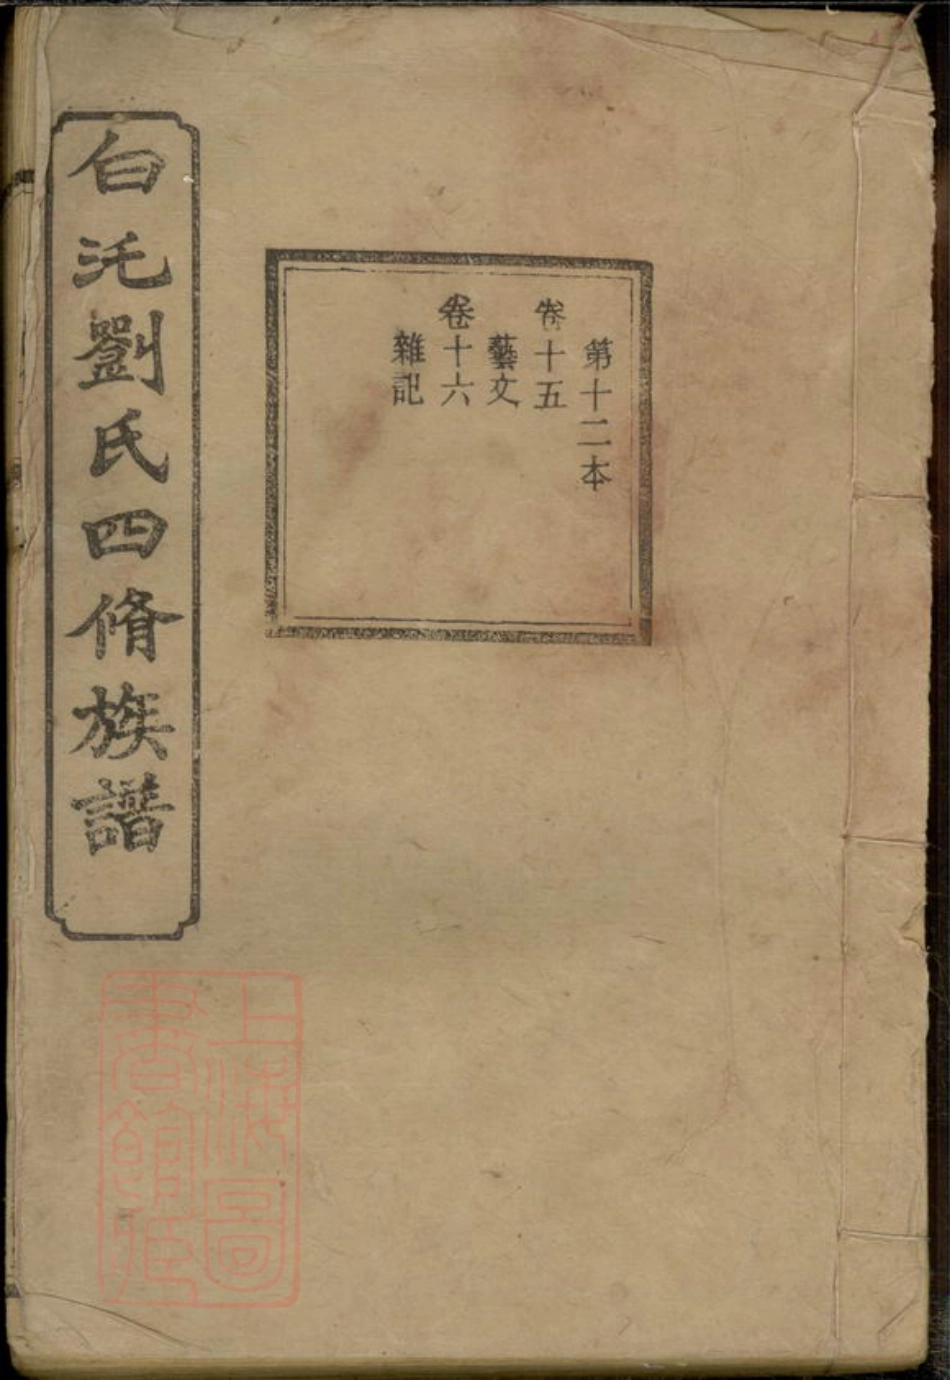 第十二本
卷十五
藝文
卷十六
雜記
白沱劉氏四脩族譜
上海圖
書館藏